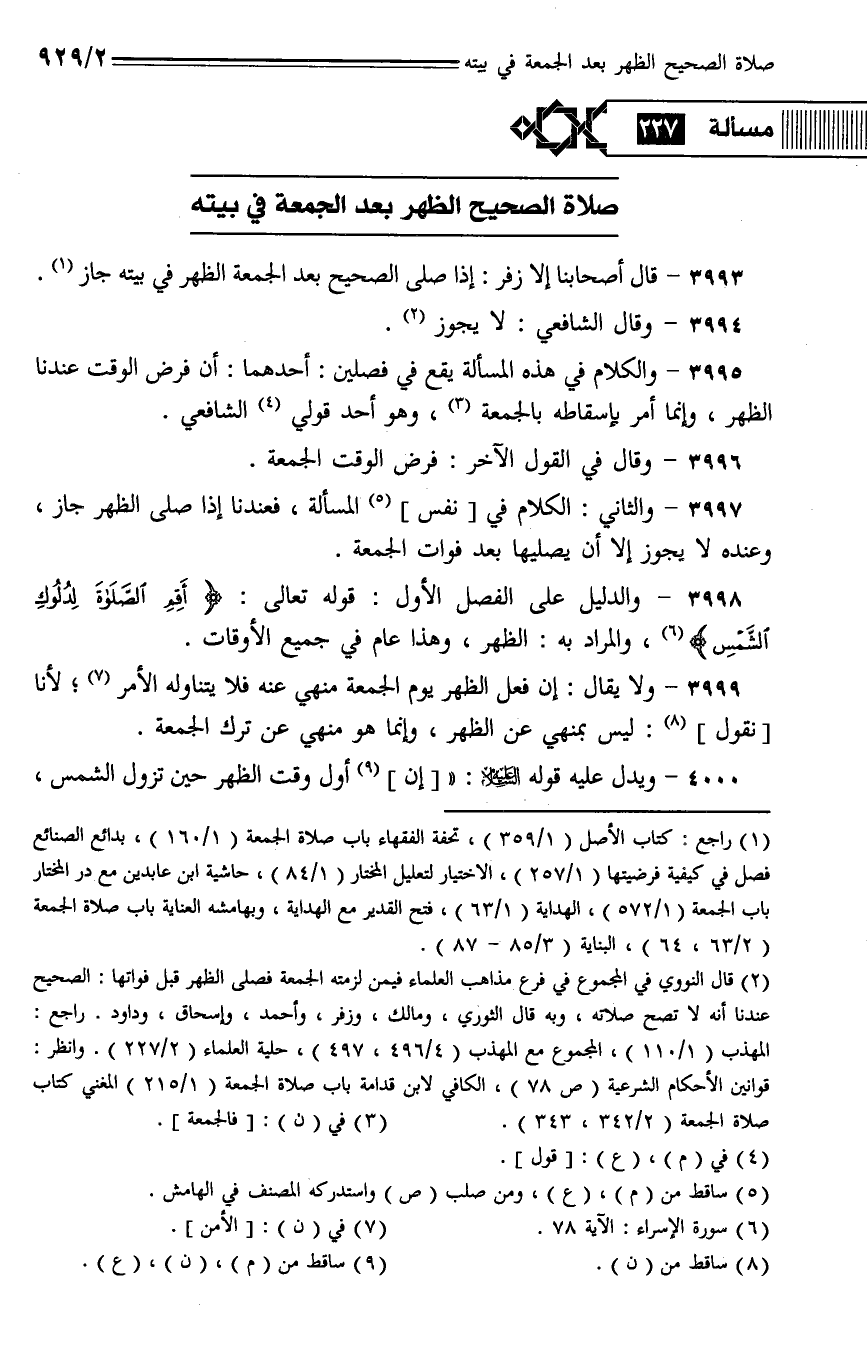 صلاة الصحيح الظهر بعد الجمعة في بيته ٩٢٩/٢
مسألة ٢٢٧
صلاة الصحيح الظهر بعد الجمعة في بيته
٣٩٩٣ - قال أصحابنا إلا زفر : إذا صلى الصحيح بعد الجمعة الظهر في بيته جاز (١) .
٣٩٩٤ - وقال الشافعي : لا يجوز (٢) .
٣٩٩٥ - والكلام في هذه المسألة يقع في فصلين : أحدهما : أن فرض الوقت عندنا
الظهر ، وإنما أمر بإسقاطه بالجمعة (٣) ، وهو أحد قولي (٤) الشافعي .
٣٩٩٦ - وقال في القول الآخر : فرض الوقت الجمعة .
٣٩٩٧ - والثاني : الكلام في [ نفس ] (٥) المسألة ، فعندنا إذا صلى الظهر جاز ،
وعنده لا يجوز إلا أن يصليها بعد فوات الجمعة .
٣٩٩٨ - والدليل على الفصل الأول : قوله تعالى : ﴿ أَقِمِ ٱلصَّلَوٰةَ لِدُلُوكِ
ٱلشَّمْسِ ﴾ (٦) ، والمراد به : الظهر ، وهذا عام في جميع الأوقات .
٣٩٩٩ - ولا يقال : إن فعل الظهر يوم الجمعة منهي عنه فلا يتناوله الأمر (٧) ؛ لأنا
[ نقول ] (٨) : ليس بمنهي عن الظهر ، وإنما هو منهي عن ترك الجمعة .
٤٠٠٠ - ويدل عليه قوله عليه السلام : « [ إن ] (٩) أول وقت الظهر حين تزول الشمس ،
(١) راجع : كتاب الأصل ( ٣٥٩/١ ) ، تحفة الفقهاء باب صلاة الجمعة ( ١٦٠/١ ) ، بدائع الصنائع
فصل في كيفية فرضيتها ( ٢٥٧/١ ) ، الاختيار لتعليل المختار ( ٨٤/١ ) ، حاشية ابن عابدين مع در المختار
باب الجمعة ( ٥٧٢/١ ) ، الهداية ( ٦٣/١ ) ، فتح القدير مع الهداية ، وبهامشه العناية باب صلاة الجمعة
( ٦٣/٢ ، ٦٤ ) ، البناية ( ٨٥/٣ - ٨٧ ) .
(٢) قال النووي في المجموع في فرع مذاهب العلماء فيمن لزمته الجمعة فصلى الظهر قبل فواتها : الصحيح
عندنا أنه لا تصح صلاته ، وبه قال الثوري ، ومالك ، وزفر ، وأحمد ، وإسحاق ، وداود . راجع :
المهذب ( ١١٠/١ ) ، المجموع مع المهذب ( ٤٩٦/٤ ، ٤٩٧ ) ، حلية العلماء ( ٢٢٧/٢ ) . وانظر :
قوانين الأحكام الشرعية ( ص ٧٨ ) ، الكافي لابن قدامة باب صلاة الجمعة ( ٢١٥/١ ) المغني كتاب
صلاة الجمعة ( ٣٤٢/٢ ، ٣٤٣ ) . (٣) في ( ن ) : [ فالجمعة ] .
(٤) في ( م ) ، ( ع ) : [ قول ] .
(٥) ساقط من ( م ) ، ( ع ) ، ومن صلب ( ص ) واستدركه المصنف في الهامش .
(٦) سورة الإسراء : الآية ٧٨ . (٧) في ( ن ) : [ الأمن ] .
(٨) ساقط من ( ن ) . (٩) ساقط من ( م ) ، ( ن ) ، ( ع ) .